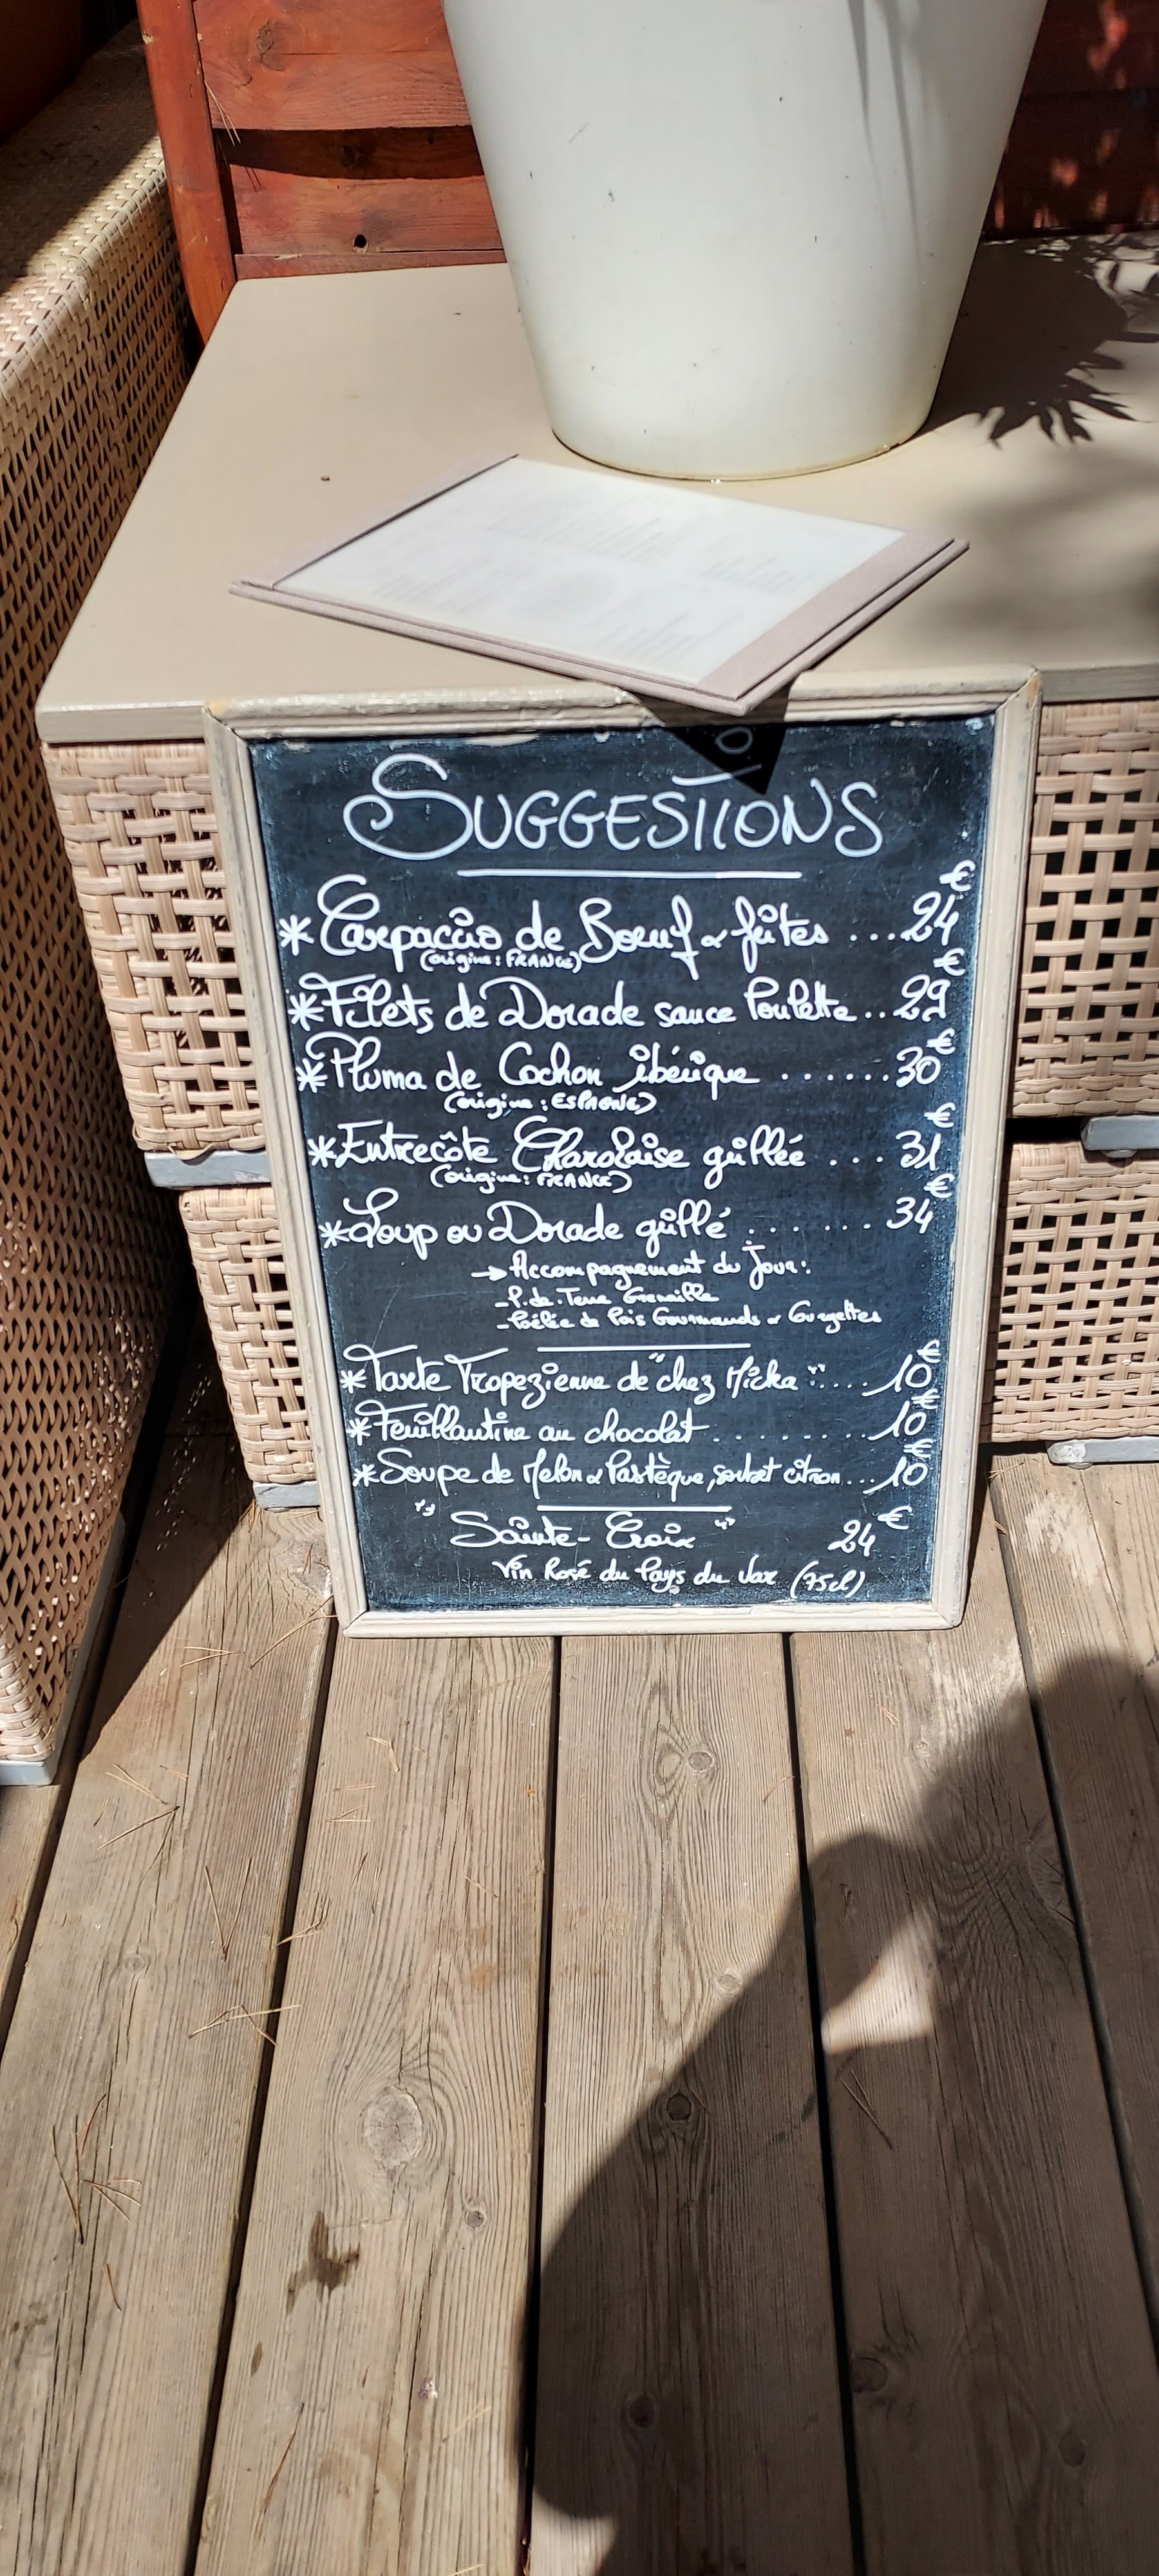 SUGGESTIONS
* Carpaccio de Boeuf & frites ...24€
(origine : FRANCE)
* Filets de Dorade sauce Poulette ..29€
* Pluma de Cochon ibérique ......30€
(origine : ESPAGNE)
* Entrecôte Charolaise grillée ...31€
(origine : FRANCE)
* Loup ou Dorade grillé .......34€
→ Accompagnement du Jour :
- P. de Terre Grenaille
- Poêlée de Pois Gourmands & Courgettes
* Tarte Tropezienne de "chez Micka" ....10€
* Feuillantine au chocolat ........10€
* Soupe de Melon & Pastèque, sorbet citron ...10€
"Sainte-Croix" 24€
Vin Rosé du Pays du Var (75cl)